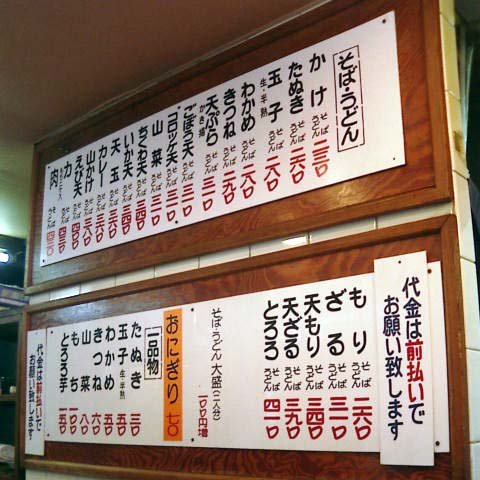 そば・うどん
かけ そば うどん 二三〇
たぬき そば うどん 二六〇
玉子 生・半熟 そば うどん 二六〇
わかめ そば うどん 二八〇
きつね そば うどん 二九〇
天ぷら かき揚 そば うどん 三一〇
ごぼう天 そば うどん 三一〇
コロッケ天 そば うどん 三一〇
山菜 そば うどん 三一〇
ちくわ天 そば うどん 三四〇
いか天 そば うどん 三四〇
天玉 そば うどん 三六〇
カレー そば うどん 三六〇
山かけ そば うどん 三八〇
えび天 そば うどん 四〇〇
力 そば うどん 四三〇
肉 そば うどん 四三〇
代金は前払いで
お願い致します
もり そば うどん 二六〇
ざる そば うどん 三一〇
天もり そば うどん 三四〇
天ざる そば うどん 三九〇
とろろ そば うどん 四一〇
そば・うどん 大盛(二人分) 一〇〇円増
おにぎり 七〇
一品物
たぬき 三〇
玉子 生・半熟 五〇
わかめ 五〇
きつね 六〇
山菜 八〇
もち
とろろ芋 一五〇
代金は前払いで
お願い致します